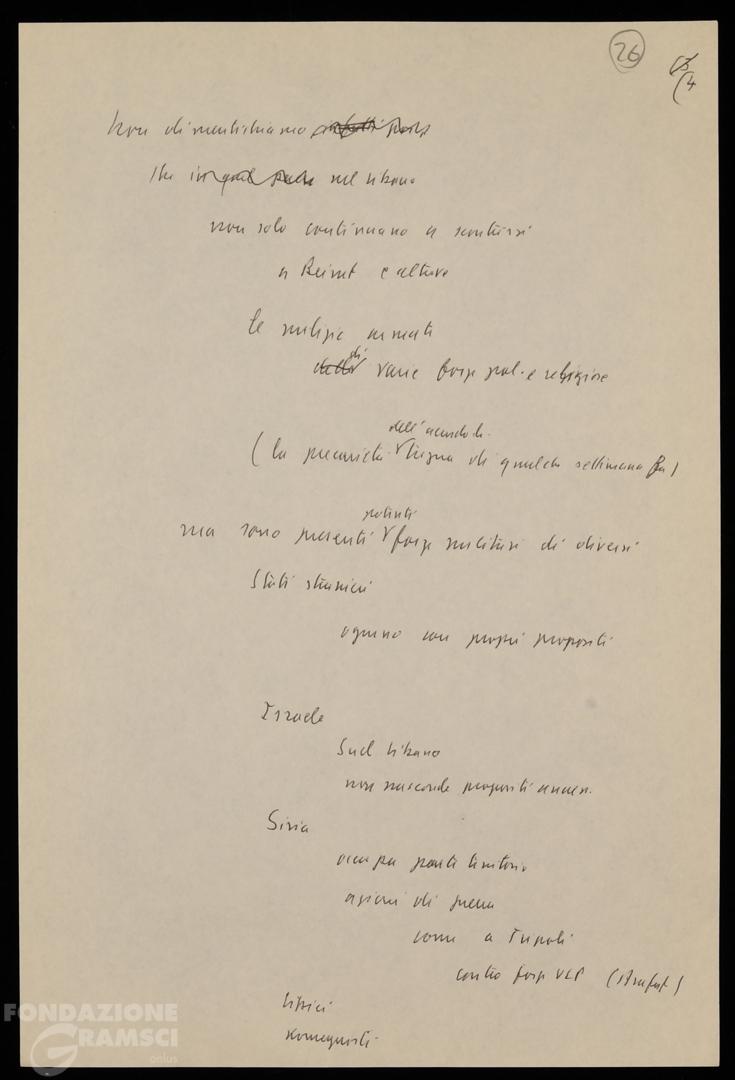 26
14
Non dimentichiamo infatti
che nel Libano
non solo continuano a scontrarsi
a Beirut e altrove
le milizie armate
delle di varie forze pol. e religiose
dell'accordo di
(la precarietà tregua di qualche settimana fa)
potenti
ma sono presenti forze militari di diversi
Stati stranieri
ognuno con propri propositi
Israele
Sud Libano
non nasconde propositi annes.
Siria
occupa parte territorio
azioni di guerra
come a Tripoli
contro forze OLP (Arafat)
Libici
Komeynisti
FONDAZIONE
GRAMSCI
onlus